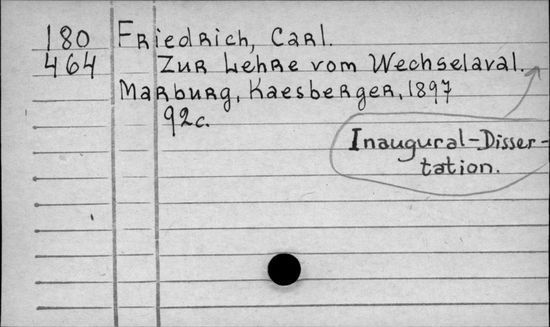 180 Friedrich, Carl.
464 Zur Lehre vom Wechselaval.
Marburg, Kaesberger, 1897
92c.
Inaugural-Disser-
tation.